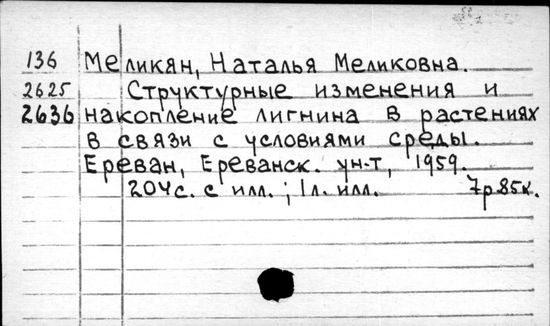 136 Меликян, Наталья Меликовна.
2625 Структурные изменения и
2636 накопление лигнина в растениях
в связи с условиями среды.
Ереван, Ереванск. ун-т, 1959.
204с. с илл.; 1л. илл. 7р85к.